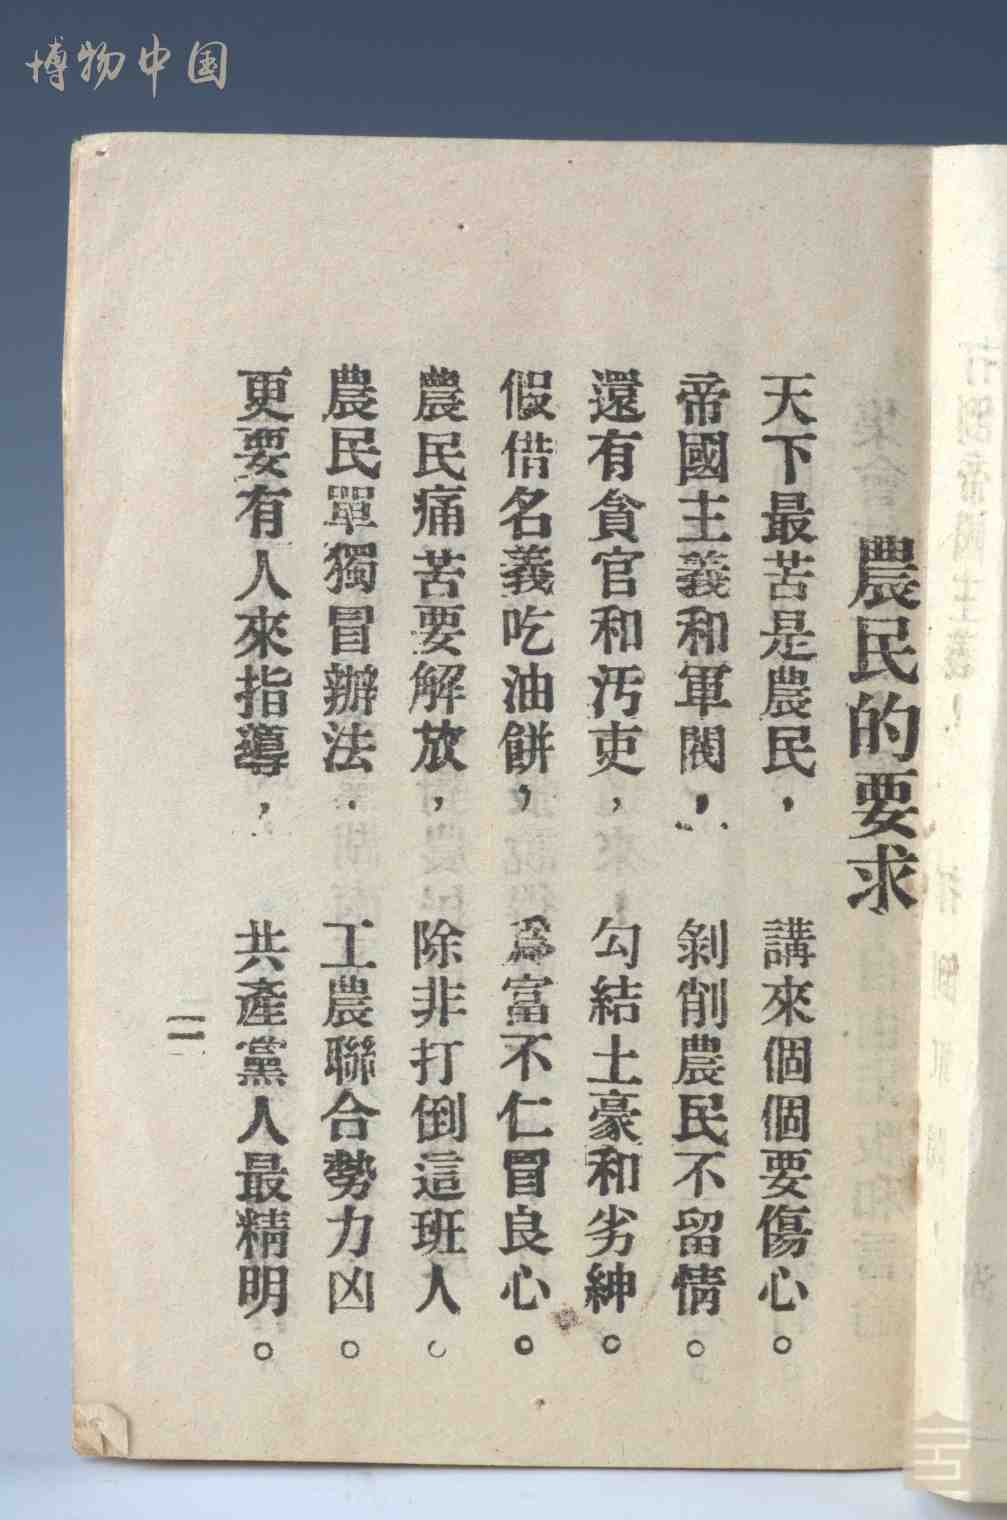 博物中国
農民的要求
天下最苦是農民，講來個個要傷心。
帝國主義和軍閥，剝削農民不留情。
還有貪官和汚吏，勾結土豪和劣紳。
假借名義吃油餅，爲富不仁冒良心。
農民痛苦要解放，除非打倒這班人。
農民單獨冒辦法．工農聯合勢力凶。
更要有人來指導，共產黨人最精明。
二